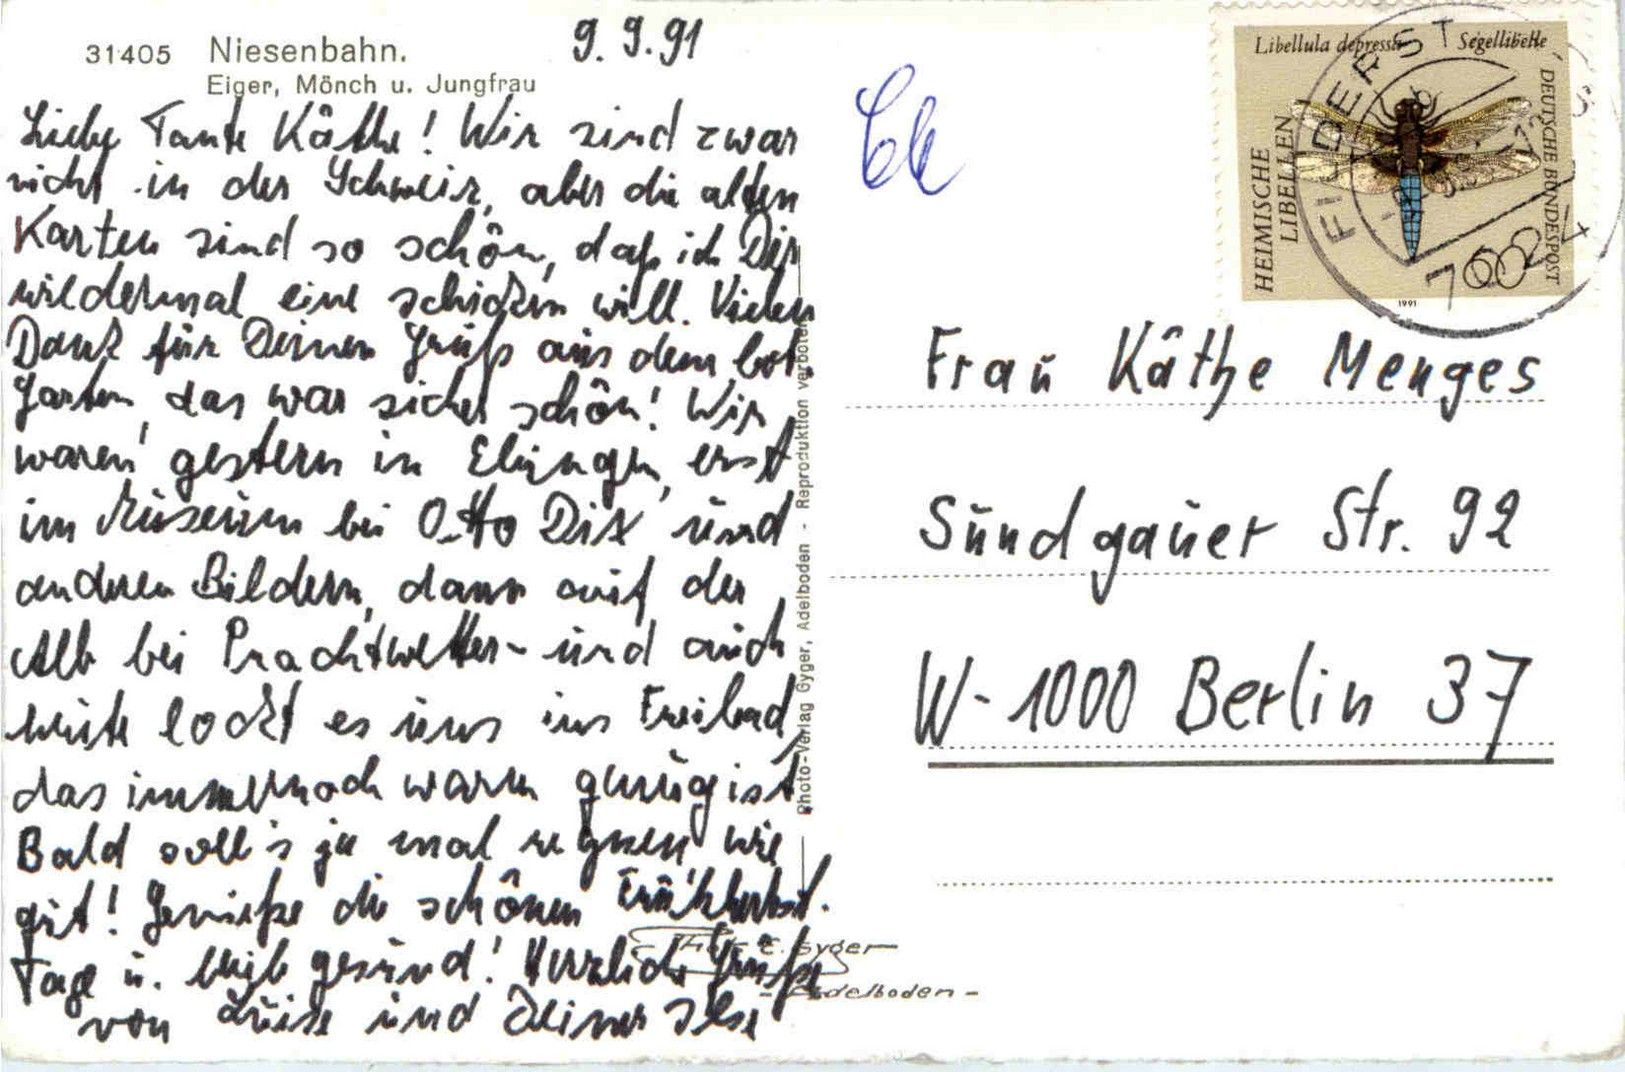 9.9.91
31405 Niesenbahn.
Eiger, Mönch u. Jungfrau
Liebe Tante Käthe! Wir sind zwar
nicht in der Schweiz, aber die alten
Karten sind so schön, daß ich Dir
wiedermal eine schicken will. Vielen
Dank für Deinen Gruß aus dem bot.
Garten, das war sicher schön! Wir
waren gestern in Ebingen, erst
im Museum bei Otto Dix und
anderen Bildern, dann auf der
Alb bei Prachtwetter - und auch
heute lockt es uns ins Freibad,
das immernoch warm genug ist.
Bald soll's ja mal regnen wie
gut! Genieße die schönen Frühherbst-
Tage u. bleib gesund! Herzliche Grüße
von Luise und Deiner Ilse
Photo-Verlag Gyger, Adelboden - Reproduktion verboten
E. Gyger
- Adelboden -
Libellula depressa Segellibelle
HEIMISCHE
LIBELLEN
DEUTSCHE BUNDESPOST
60
1991
FILDERST
Frau Käthe Menges
Sundgauer Str. 92
W-1000 Berlin 37